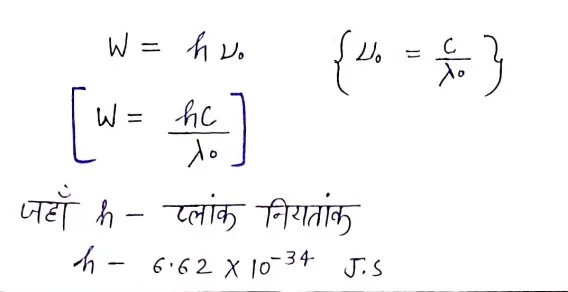 W = hν₀ { ν₀ = c/λ₀ }
[ W = hc/λ₀ ]
जहाँ h – प्लांक नियतांक
h – 6.62 × 10⁻³⁴ J.S